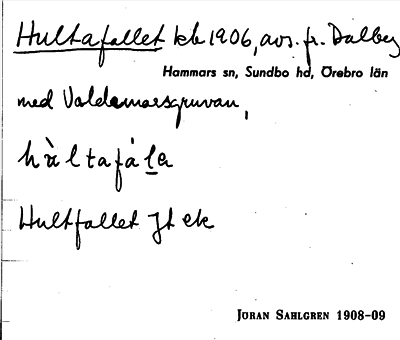 Hultafallet kb 1906, avs. fr. Dalby
Hammars sn, Sundbo hd, Örebro län
med Valdemarsgruvan,
hὰltafálа
Hultfallet Jt ek
JÖRAN SAHLGREN 1908-09